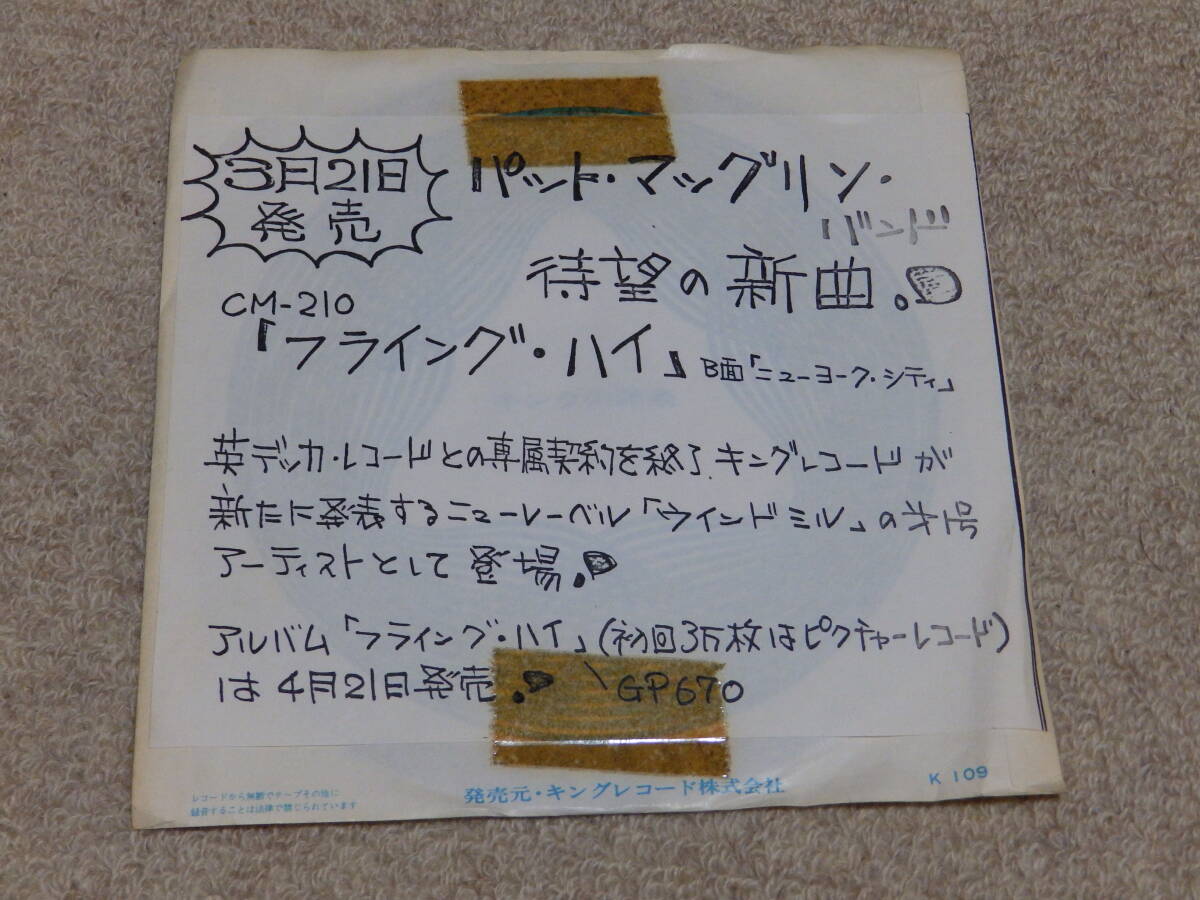 3月21日
発売
パット・マックグリン・
バンド
待望の新曲!
CM-210
「フライング・ハイ」 B面「ニューヨーク・シティ」
英デッカ・レコードとの専属契約を終了、キングレコードが
新たに発表するニューレーベル「ウインドミル」の才1号
アーティストとして登場!
アルバム「フライング・ハイ」(初回3万枚はピクチャーレコード)
は4月21日発売! GP670
レコードから無断でテープその他に
録音することは法律で禁じられています
発売元・キングレコード株式会社
K 109